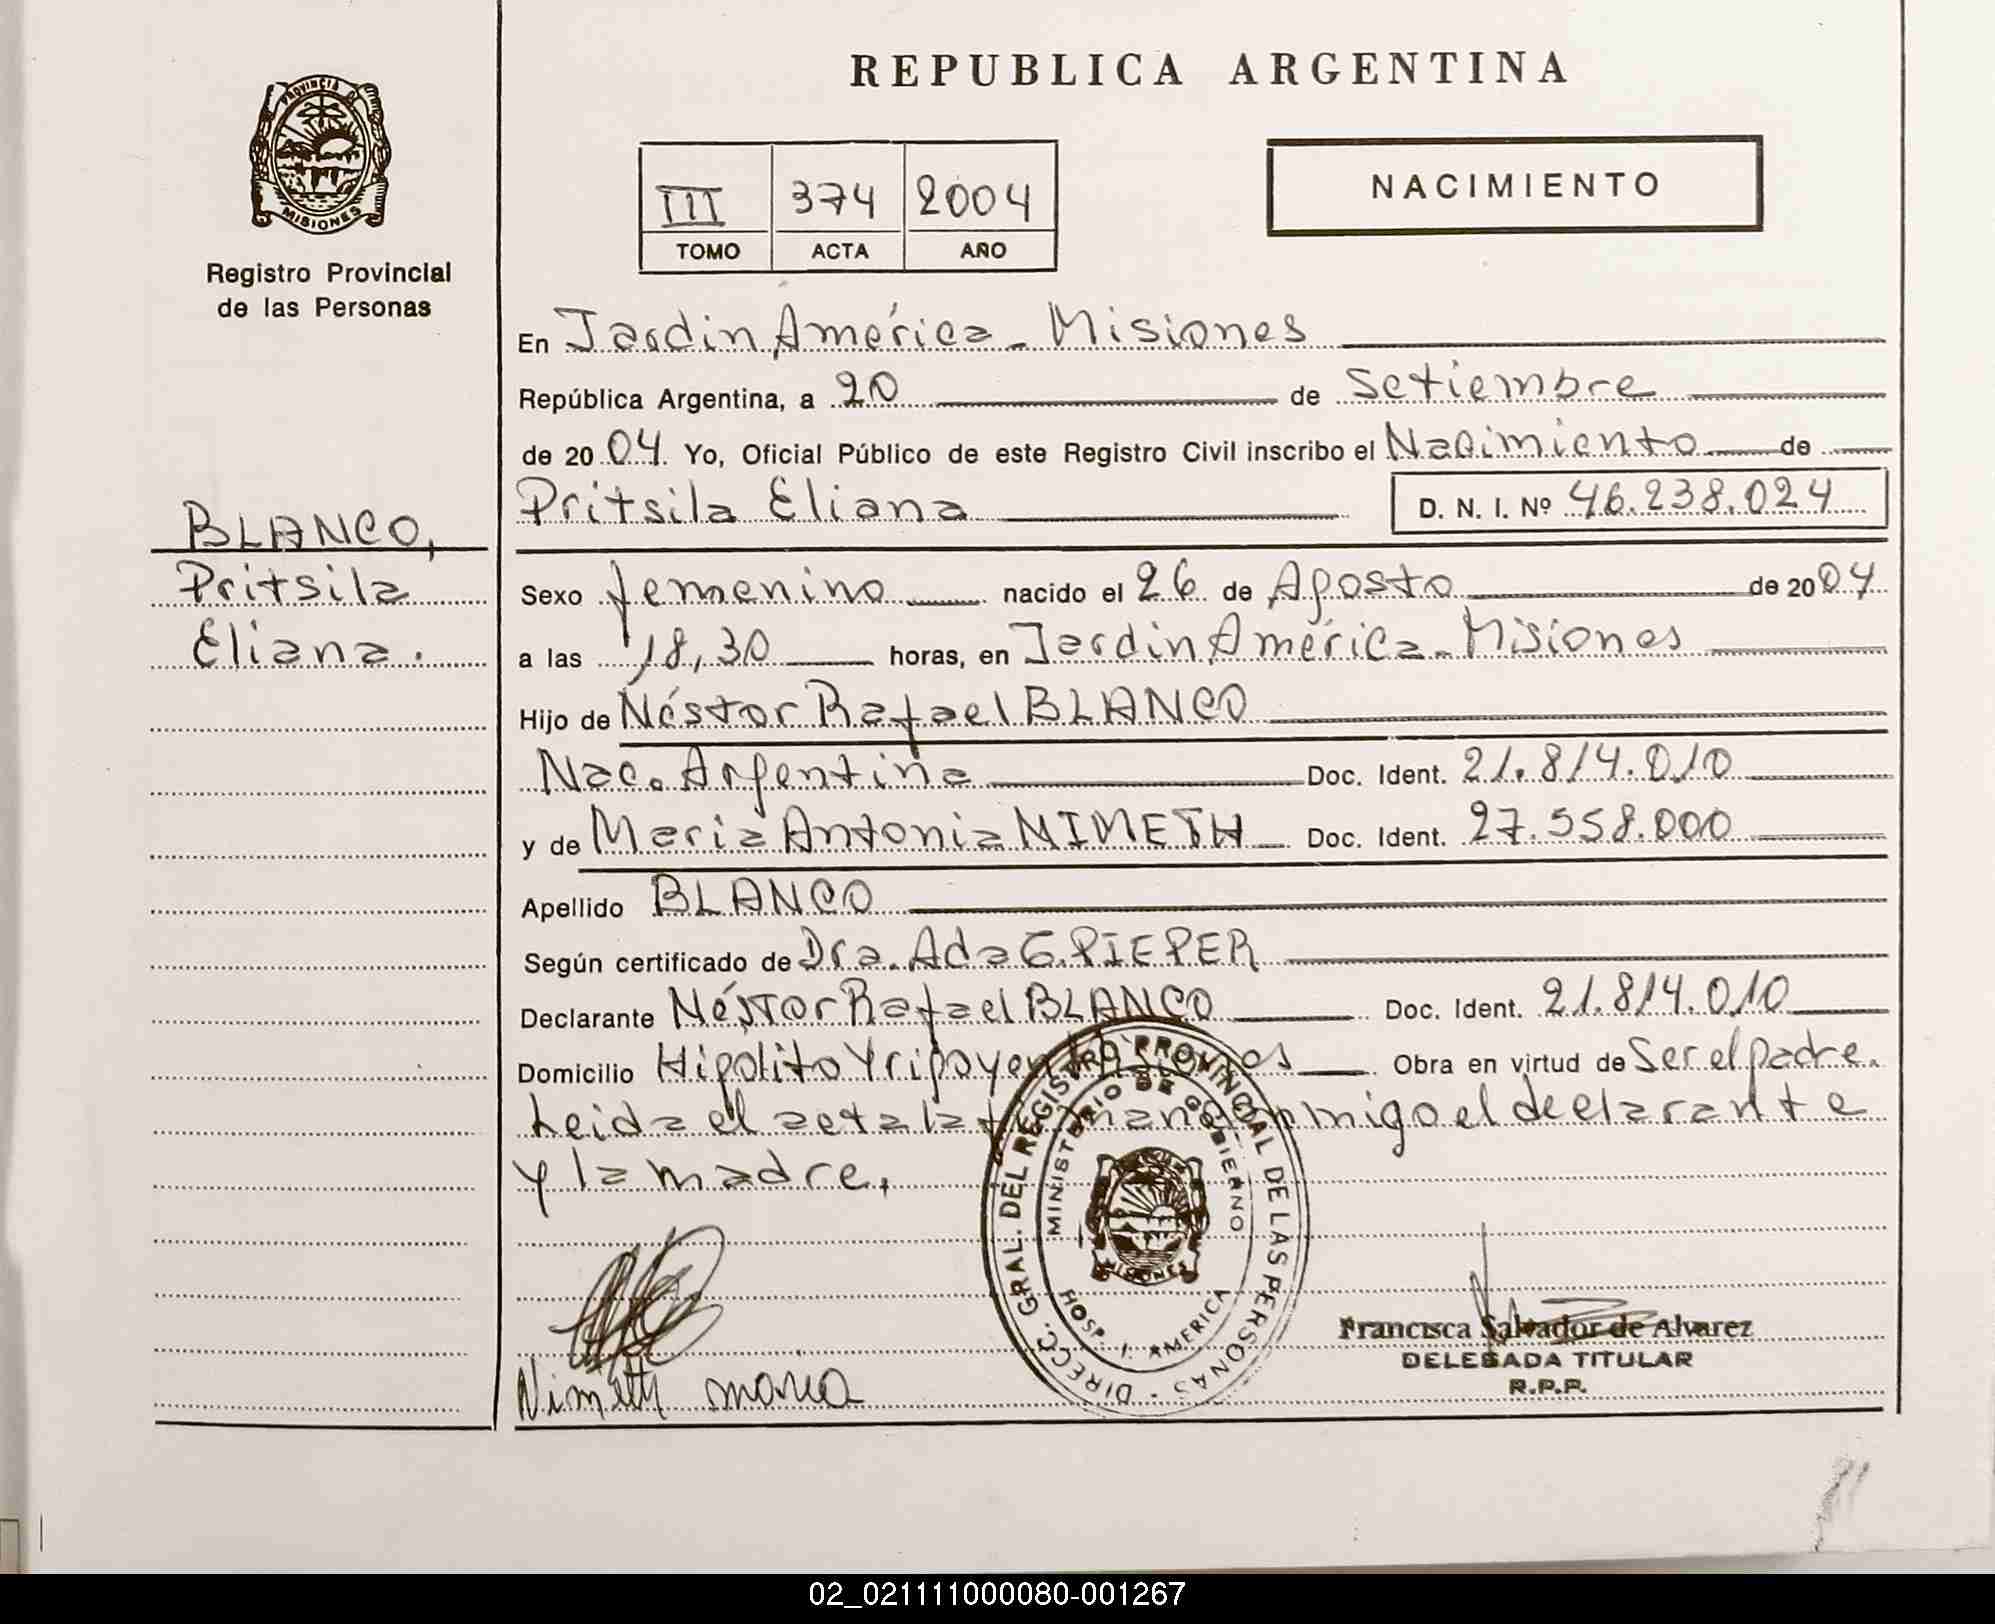 REPUBLICA ARGENTINA
PROVINCIA DE
MISIONES
Registro Provincial
de las Personas
III 374 2004
TOMO ACTA AÑO
NACIMIENTO
En Jardin América - Misiones
República Argentina, a 20 de Setiembre
de 2004 Yo, Oficial Público de este Registro Civil inscribo el Nacimiento de
Pritsila Eliana D. N. I. Nº 46.238.024
BLANCO,
Pritsila
Eliana.
Sexo femenino nacido el 26 de Agosto de 2004
a las 18,30 horas, en Jardin América - Misiones
Hijo de Néstor Rafael BLANCO
Nac. Argentina Doc. Ident. 21.814.010
y de Maria Antonia NIMETH Doc. Ident. 27.558.000
Apellido BLANCO
Según certificado de Dra. Ada G. PIEPER
Declarante Néstor Rafael BLANCO Doc. Ident. 21.814.010
Domicilio Hipólito Yripoyen Obra en virtud de Ser el padre.
Leida el acta la firman conmigo el declarante
y la madre,
DIRECC. GRAL. DEL REGISTRO PROVINCIAL DE LAS PERSONAS -
MINISTERIO DE GOBIERNO
MISIONES
HOSP. J. AMERICA
Nimeth maria
Francisca Salvador de Alvarez
DELEGADA TITULAR
R.P.P.
02_021111000080-001267